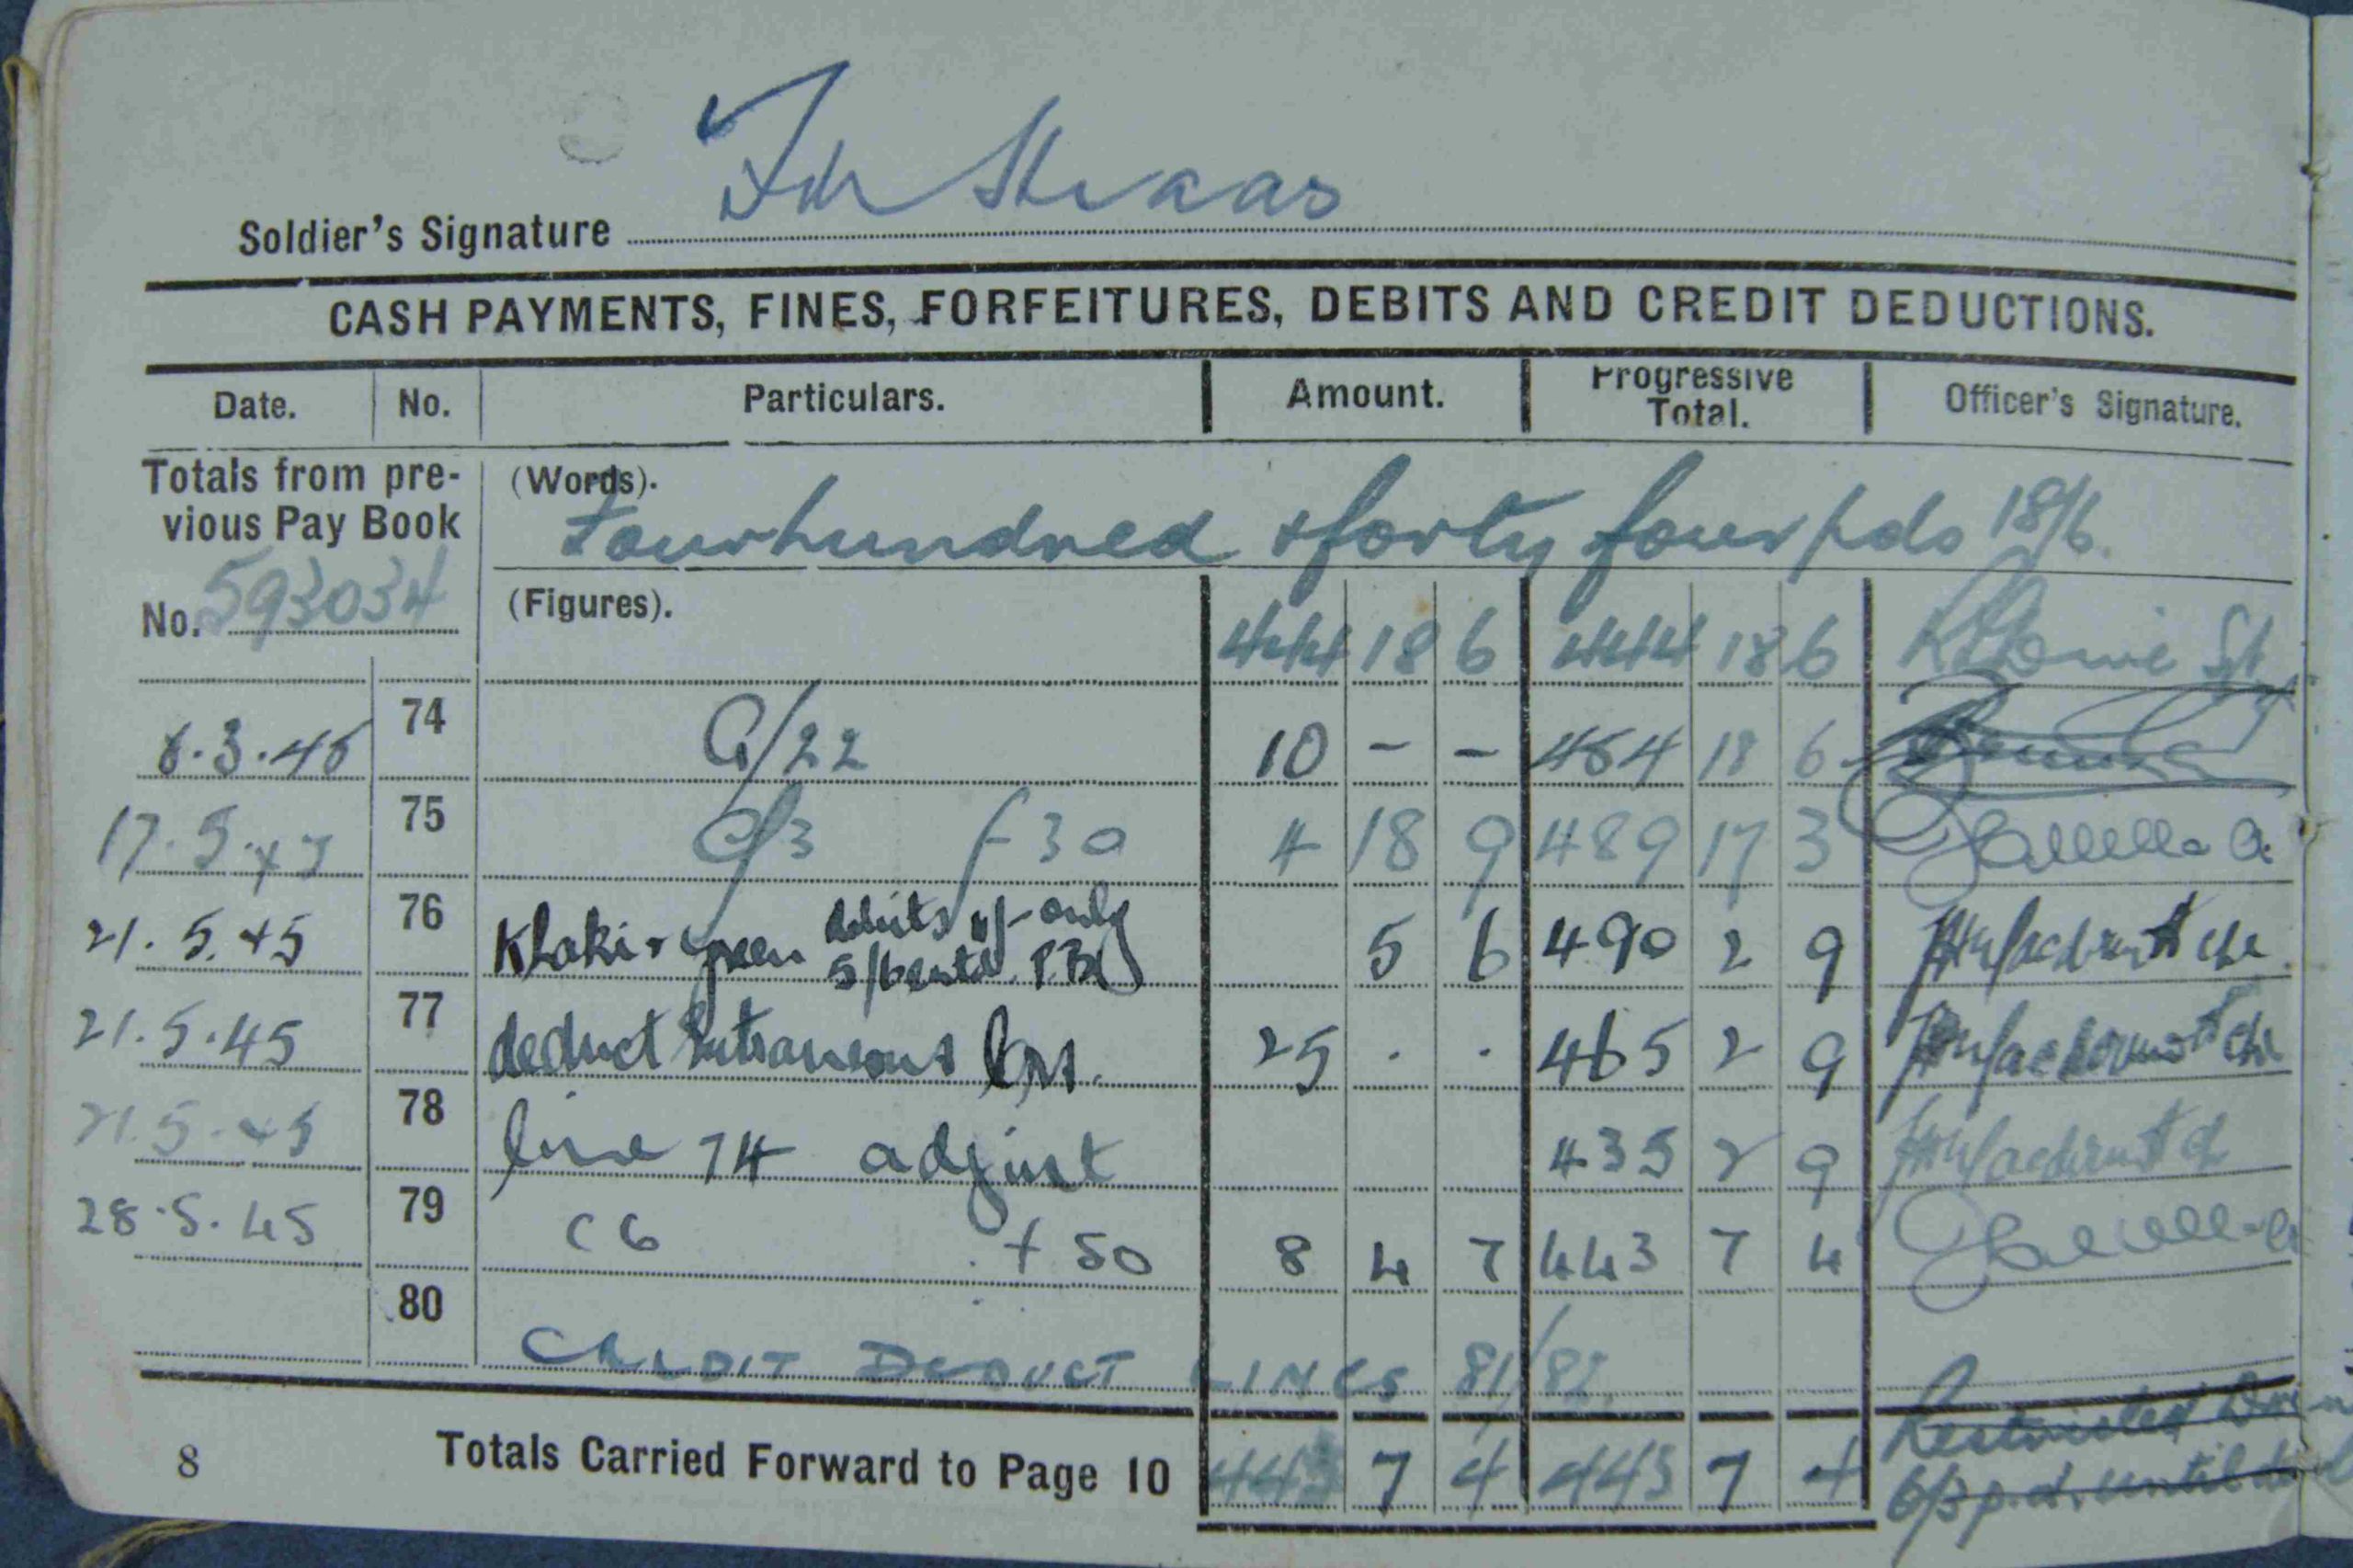 Soldier's Signature
CASH PAYMENTS, FINES, FORFEITURES, DEBITS AND CREDIT DEDUCTIONS.
Date. No. Particulars. Amount. Progressive Total. Officer's Signature.
Totals from pre-
vious Pay Book
No. 593034
(Words).
Fourhundred & forty four pds 18/6.
(Figures). 444 18 6 444 18 6
8.3.45 74 G/22 10 - - 484 18 6
17.5.45 75 C/3 f 30 4 18 9 489 17 3
21.5.45 76 Khaki & green debits 4/- only 5/6 entd P.Bk 5 6 490 2 9
21.5.45 77 deduct 25 . . 465 2 9
21.5.45 78 line 74 adjust 435 2 9
28.5.45 79 C6 f 50 8 4 7 443 7 4
80 CREDIT DEDUCT LINES 81/82.
8 Totals Carried Forward to Page 10 443 7 4 443 7 4
Restricted
6/3 p.d. until